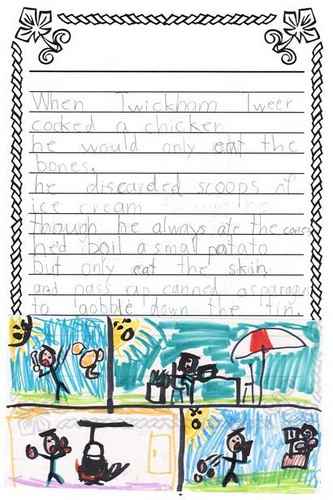 When Twickham Tweer
cooked a chicken
he would only eat the
bones.
he discarded scoops of
ice cream
though he always ate the cones
hed boil a small potato
but only eat the skin
and pass up canned asparagus
to gobble down the tin.